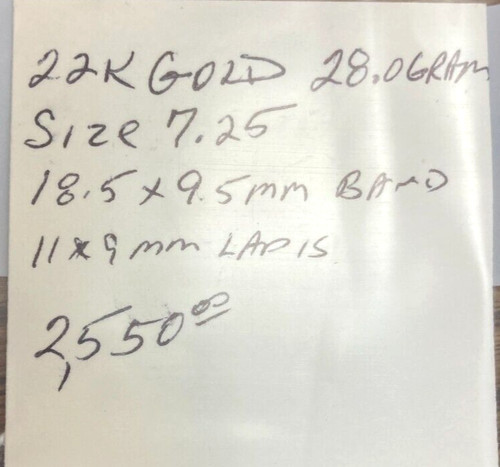 22K GOLD 28.0 GRAM
Size 7.25
18.5 x 9.5 mm BAND
11 x 9 mm LAPIS
2,550.00